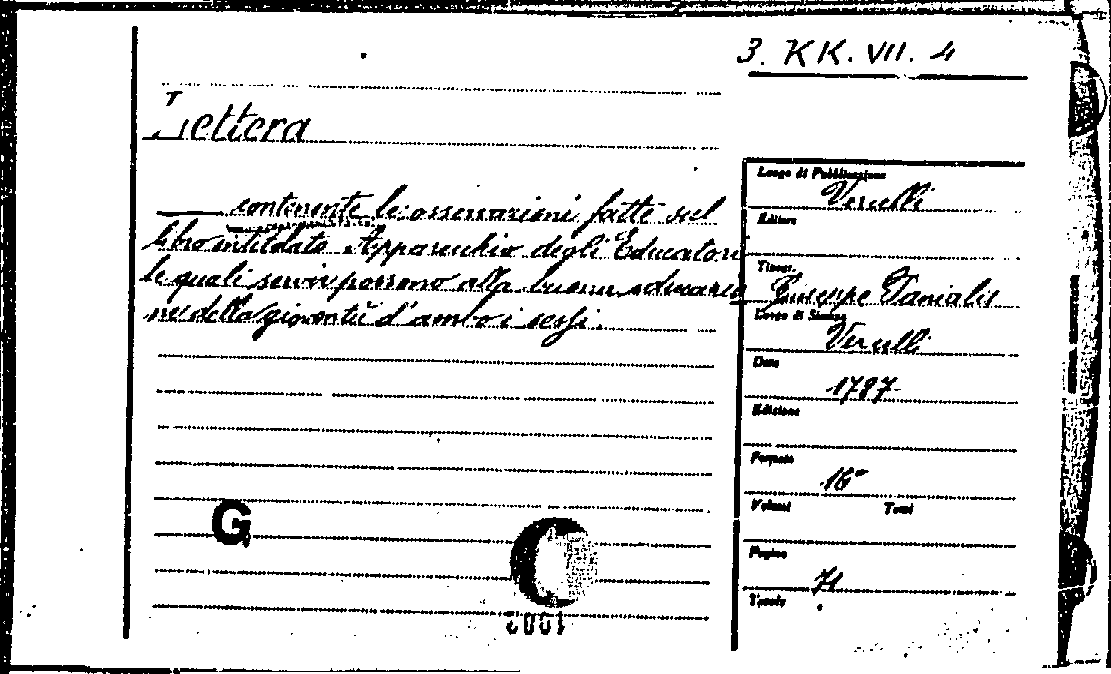 3. KK. VII. 4
Lettera
contenente le osservazioni fatte sul
libro intitolato Apparecchio degli Educatori
le quali servir possono alla buona educazio
ne della gioventù d'ambo i sessi.
Luogo di Pubblicazione
Vercelli
Editore
Tipogr.
Giuseppe Panialis
Luogo di Stampa
Vercelli
Data
1787
Edizione
Formato
16°
Volumi Tomi
Pagine
71
Tavole
G